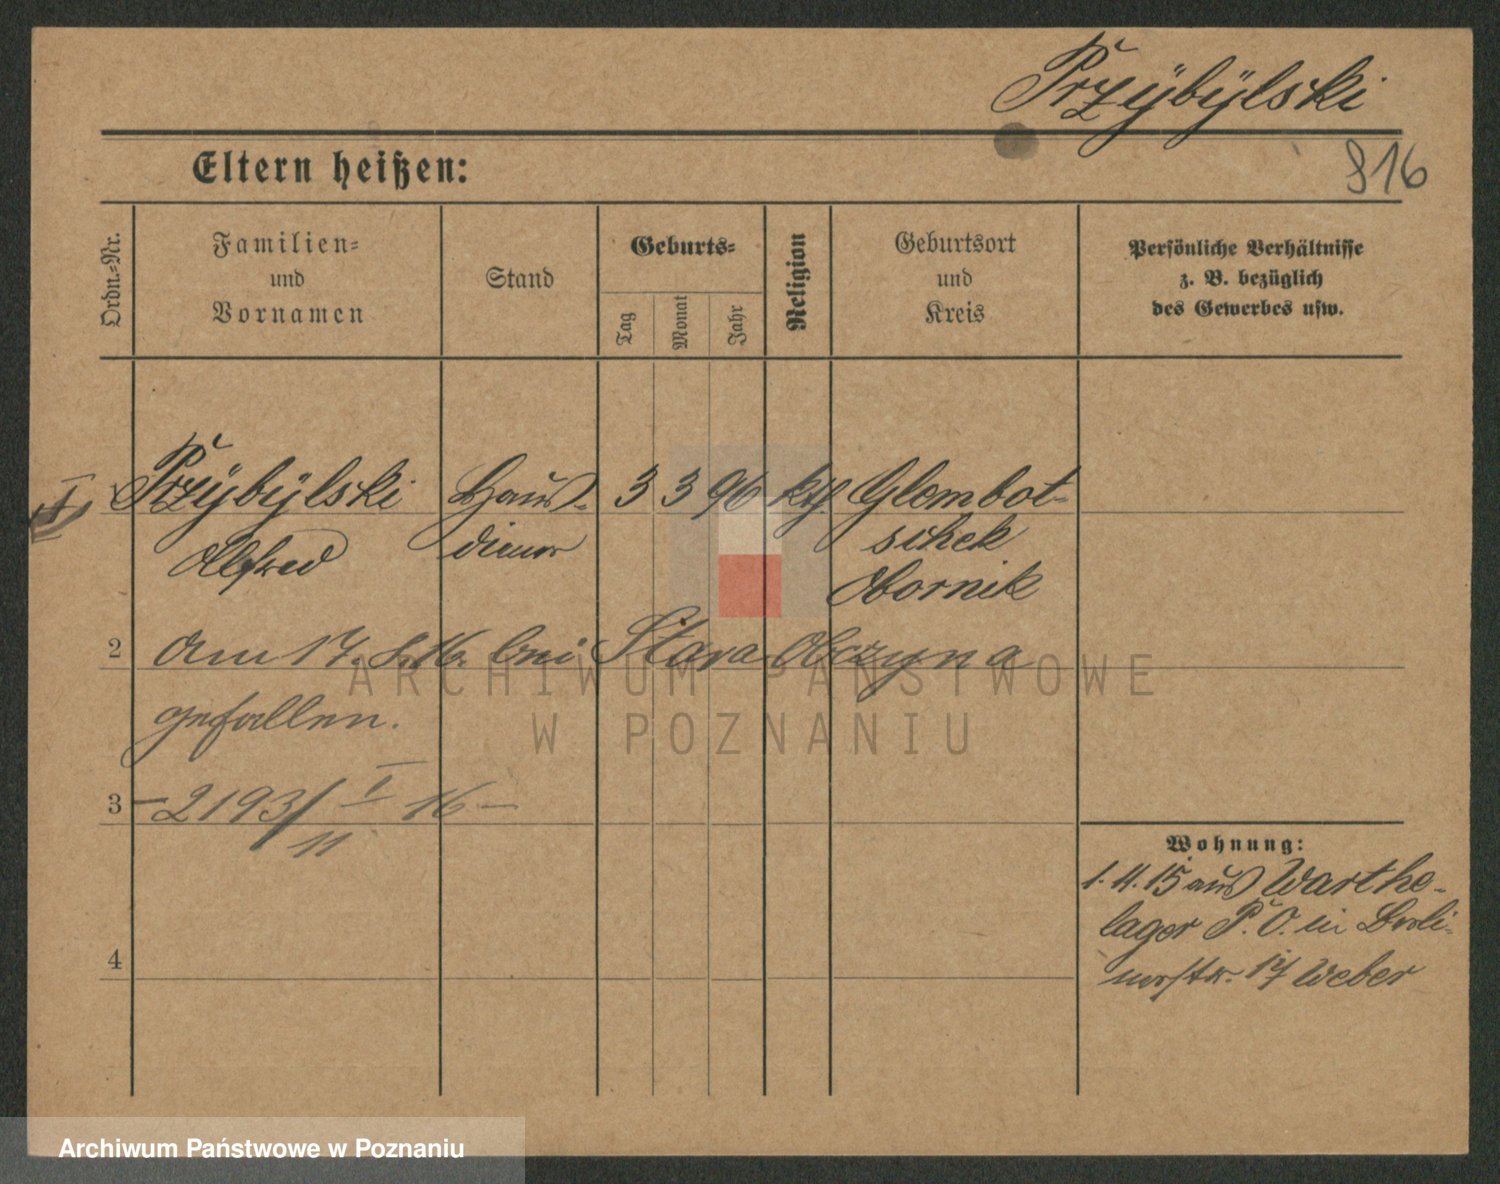 Przÿbÿlski
816
Eltern heißen:
Ordn.-Nr.
Familien-
und
Vornamen
Stand
Geburts-
Tag
Monat
Jahr
Religion
Geburtsort
und
Kreis
Persönliche Verhältnisse
z. B. bezüglich
des Gewerbes usw.
I. Przÿbÿlski Haus- 3 3 96 kth. Glembot-
Alfred diener schek
Obornik
2 Am 17. 8. 16. bei Stara Obczyna
gefallen.
3 – 2193/11 I 16 –
4
Wohnung:
1. 4. 15 aus Warthe-
lager P. O. in
17 Weber
ARCHIWUM PAŃSTWOWE
W POZNANIU
Archiwum Państwowe w Poznaniu